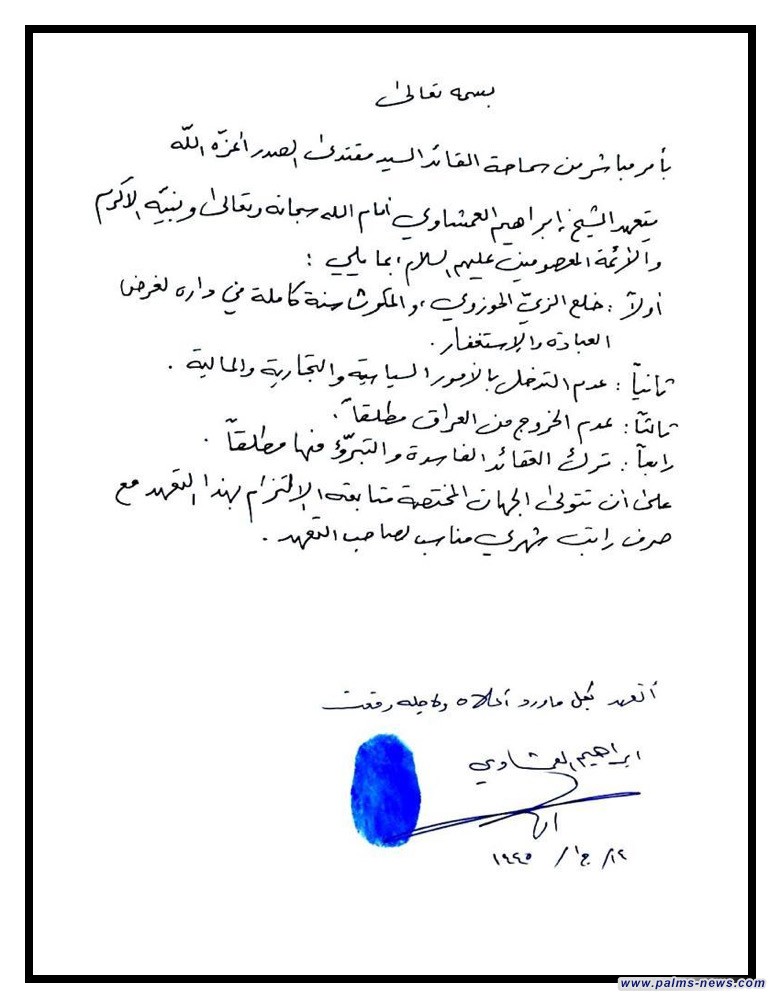 بسمه تعالى
بأمر مباشر من سماحة القائد السيد مقتدى الصدر أعزّه اللّه
يتعهد الشيخ إبراهيم العمشاوي أمام الله سبحانه وتعالى ونبيّه الأكرم
والأئمة المعصومين عليهم السلام، بما يلي :
أولاً : خلع الزيّ الحوزوي، والمكوث سنة كاملة في داره لغرض
العبادة والإستغفار.
ثانياً : عدم التدخل بالأمور السياسية والتجارية والمالية .
ثالثاً : عدم الخروج من العراق مطلقاً .
رابعاً : ترك العقائد الفاسدة والتبرّؤ منها مطلقاً .
على ان تتولى الجهات المختصة متابعة الإلتزام بهذا التعهد مع
صرف راتب شهري مناسب لصاحب التعهد .
أتعهد بكل ماورد أعلاه ولاجله وقعت
ابراهيم العمشاوي
١٢/ ج١/ ١٤٤٥
www.palms-news.com